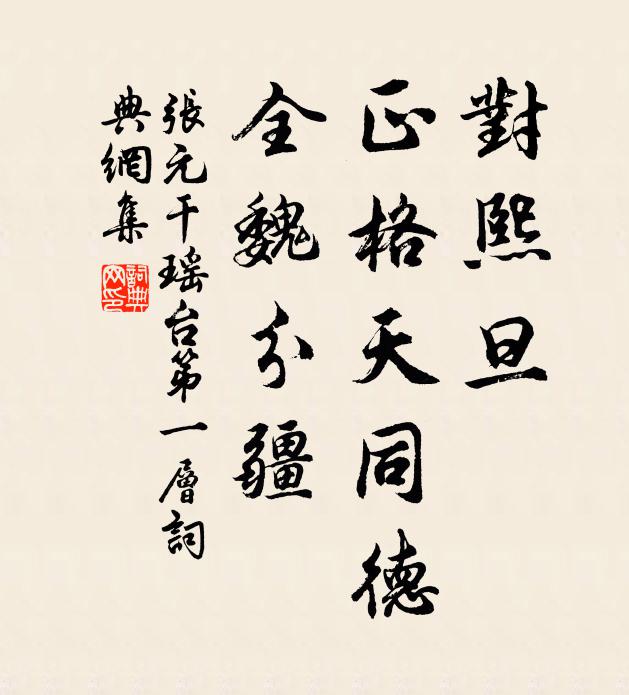 對熙旦
正格天同德
全魏分疆
張元干瑶台第一層詞
典網集
詞典网印